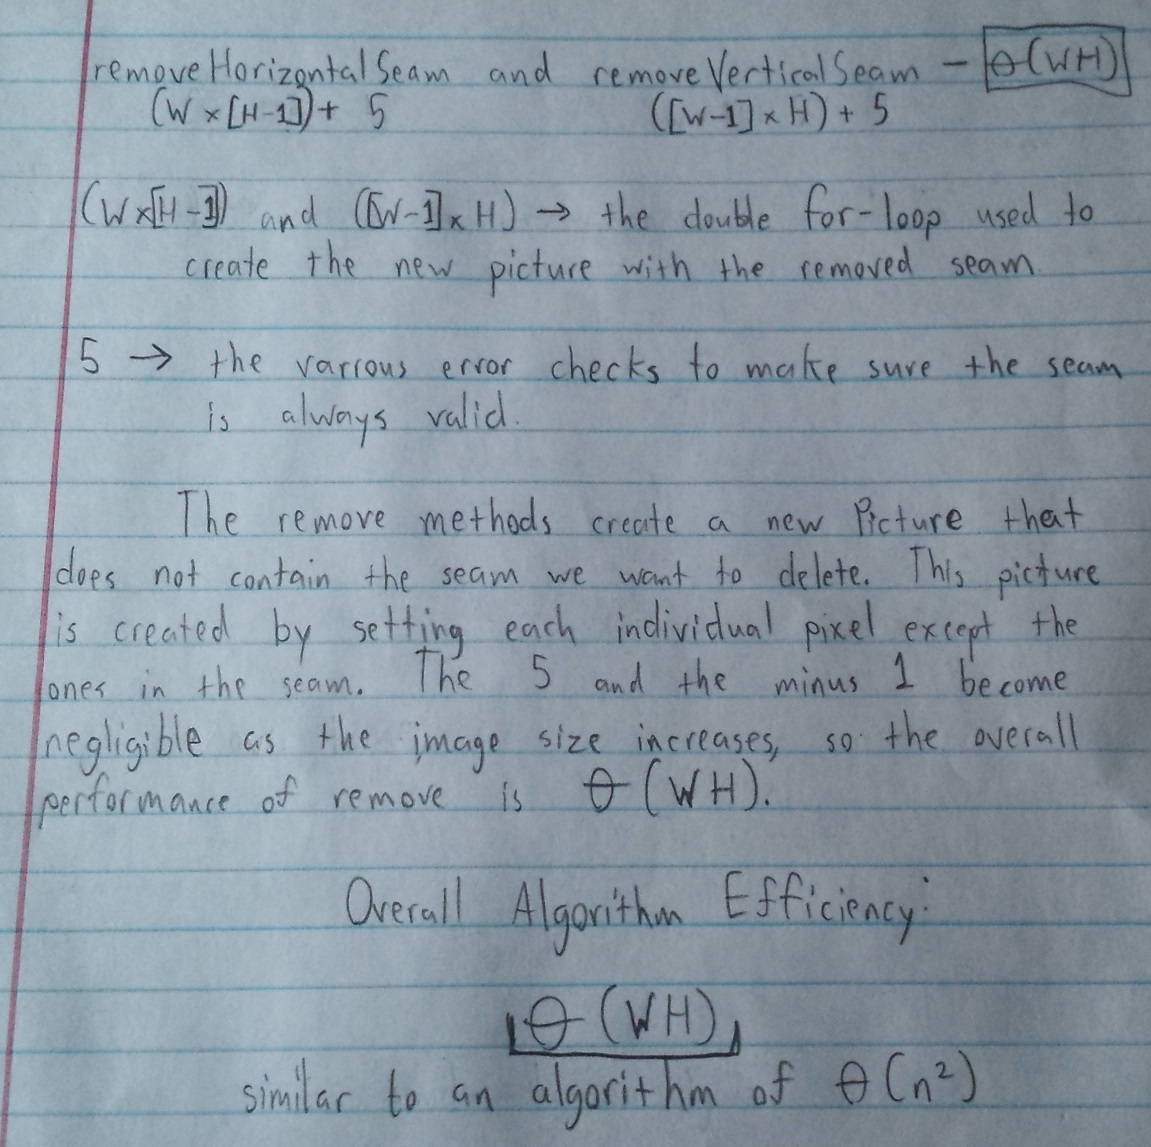 removeHorizontalSeam and removeVerticalSeam - θ(WH)
(W x [H-1]) + 5 ([W-1] x H) + 5
(W x [H-1]) and ([W-1] x H) → the double for-loop used to
create the new picture with the removed seam
5 → the various error checks to make sure the seam
is always valid.
The remove methods create a new Picture that
does not contain the seam we want to delete. This picture
is created by setting each individual pixel except the
ones in the seam. The 5 and the minus 1 become
negligible as the image size increases, so the overall
performance of remove is θ(WH).
Overall Algorithm Efficiency:
θ(WH)
similar to an algorithm of θ(n²)